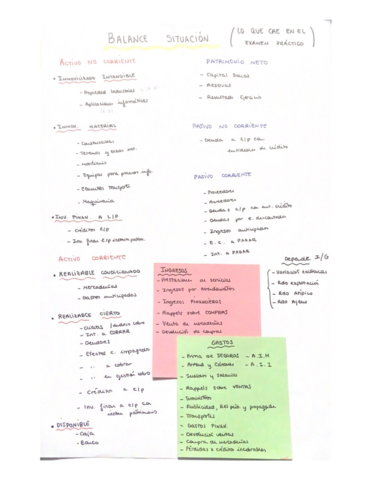 BALANCE SITUACIÓN
(LO QUE CAE EN EL EXAMEN PRÁCTICO)
ACTIVO NO CORRIENTE
• INMOVILIZADO INTANGIBLE
- Propiedad Industrial
- Aplicaciones informáticas
• INMOV. MATERIAL
- Construcciones
- Terrenos y
- Mobiliario
- Equipos para proceso info.
- Elementos Transporte
- Maquinaria
• INV. FINAN. A L/P
- Créditos L/P
- Inv. finan L/P
ACTIVO CORRIENTE
• REALIZABLE CONDICIONADO
- Mercaderías
- Gastos anticipados
• REALIZABLE CIERTO
- Clientes
- Int. a COBRAR
- Deudores
- Efectos c. impagados
- " a cobrar
- " en gestión cobro
- Créditos a C/P
- Inv. finan a C/P
• DISPONIBLE
- Caja
- Banco
PATRIMONIO NETO
- Capital Social
- Reservas
- Resultado Ejercicio
PASIVO NO CORRIENTE
- Deudas a L/P con entidades de crédito
PASIVO CORRIENTE
- Proveedores
- Acreedores
- Deudas C/P con ent. crédito
- Deudas por e. descontados
- Ingresos anticipados
- E. C. a PAGAR
- Int. a PAGAR
INGRESOS
- Prestaciones de servicios
- Ingresos por arrendamientos
- Ingresos FINANCIEROS
- Rappels sobre COMPRAS
- Venta de mercaderías
- Devolución de compras
Depende I/G
- Variación existencias
- Rdo explotación
- Rdo Atípico
- Rdo Ajeno
GASTOS
- Prima de SEGUROS - A.I.M
- Arrend y Cánones - A.I.I
- Sueldos y salarios
- Rappels sobre VENTAS
- Suministros
- Publicidad, Rel púb y propaganda
- Transportes
- Gastos FINAN.
- Devolución ventas
- Compra de mercaderías
- Pérdidas x crédito incobrables